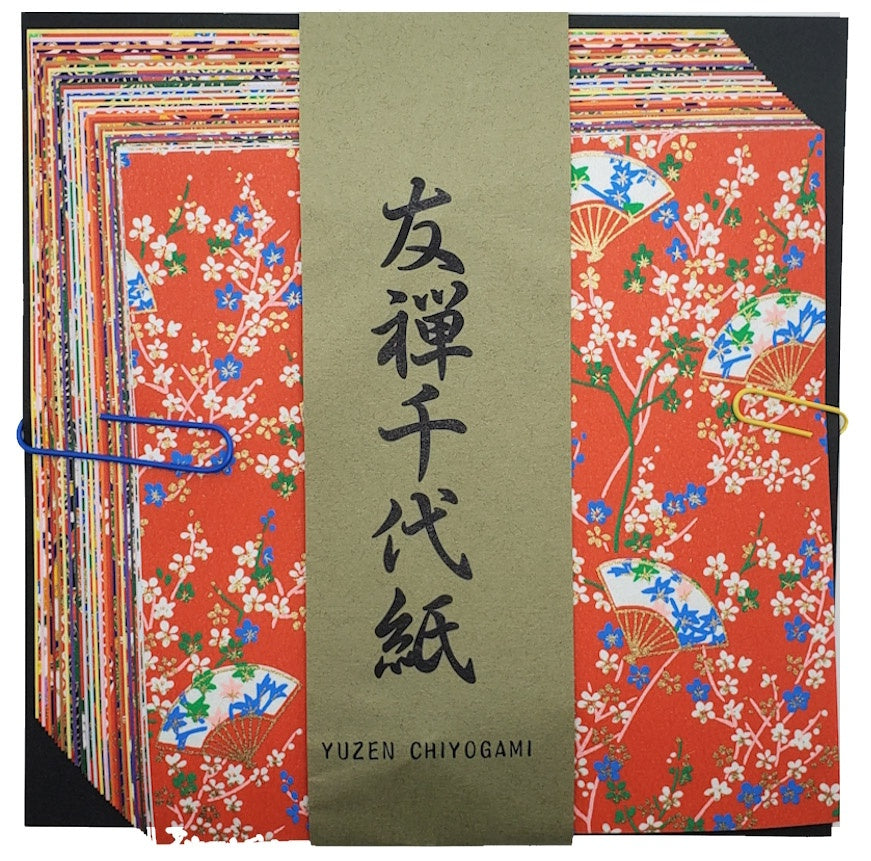 友禅千代紙
YUZEN CHIYOGAMI